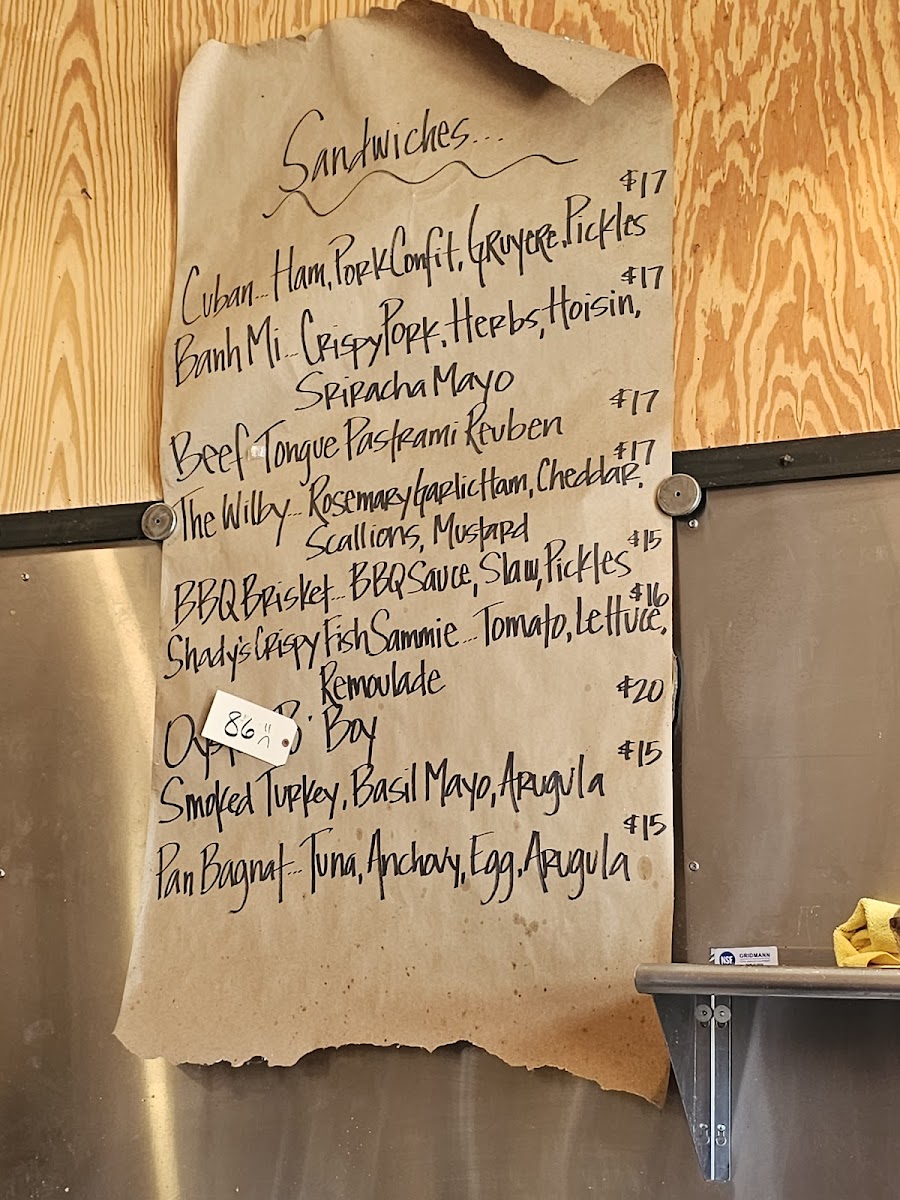 Sandwiches...
$17
Cuban... Ham, Pork Confit, Gruyere, Pickles
$17
Banh Mi... Crispy Pork, Herbs, Hoisin,
Sriracha Mayo
$17
Beef Tongue Pastrami Reuben
$17
The Wilby... Rosemary Garlic Ham, Cheddar,
Scallions, Mustard
$15
BBQ Brisket... BBQ Sauce, Slaw, Pickles
$16
Shady's Crispy Fish Sammie... Tomato, Lettuce,
Remoulade
$20
86 Boy
$15
Smoked Turkey, Basil Mayo, Arugula
$15
Pan Bagnat... Tuna, Anchovy, Egg, Arugula
NSF GRIDMANN